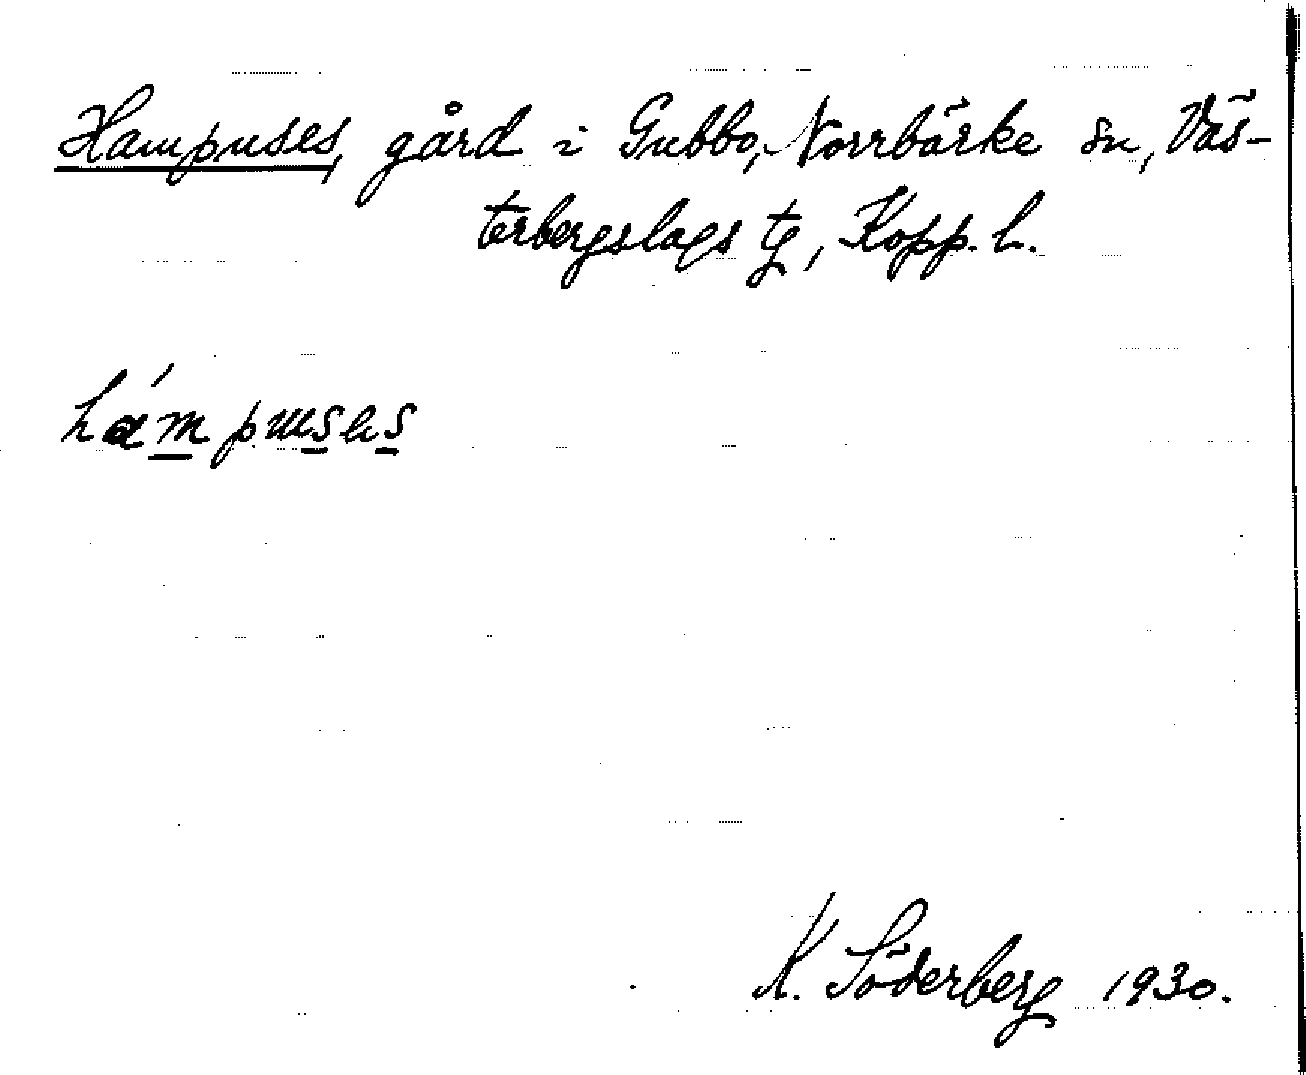 Hampuses, gård i Gubbo, Norrbärke sn, Väs-
terbergslags tg, Kopp. l.
K. Söderberg 1930.